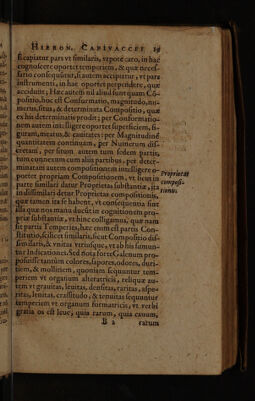 HIERON. CAPIVACCEI 19
si capiatur pars vt similaris, vt pote caro, in hac
cognoscere oportet temperiem, & quæ neces-
sario consequuntur, si autem accipiatur, vt pars
instrumenti, in hac oportet perpendere, quæ
accidunt; Hæc autem nil aliud sunt quam Co-
positio, hoc est Conformatio, magnitudo, nu-
merus, situs, & determinata Compositio, quæ
ex his determinatis prodit; per Conformatio-
nem autem intelligere oportet superficiem, fi-
guram, meatus, & cauitates: per Magnitudinē
quantitatem continuam, per Numerum dis-
cretam, per situm autem tum sedem partis,
tum connexum cum aliis partibus, per deter-
minatam autem compositionem intelligere o-
portet propriam Compositionem, vt sicut in
parte similari datur Proprietas substantiæ, ita
in dissimilari detur Proprietas compositionis,
Proprietas
composi-
tionis.
quæ tamen ita se habent, vt consequentia sint
illa quæ nos manu ducūt in cognitionem pro-
priæ substantiæ, vt hinc colligamus, quæ nam
sit partis Temperies, hæc enim est partis Con-
stitutio, scilicet similaris, sicut Compositio dis-
similaris, & vnitas vtriusque, vt ab his suman-
tur Indicationes. Sed nota forte Galenum pro-
posuisse tantum colores, sapores, odores, duri-
tiem, & mollitiem, quoniam sequuntur tem-
periem vt organum alteratricis, reliquæ au-
tem vt grauitas, leuitas, densitas, raritas, aspe-
ritas, lenitas, crassitudo, & tenuitas sequuntur
temperiem vt organum formatricis, vt verbi
gratia os est leue, quia rarum, quia cauum,
B 2 rarum